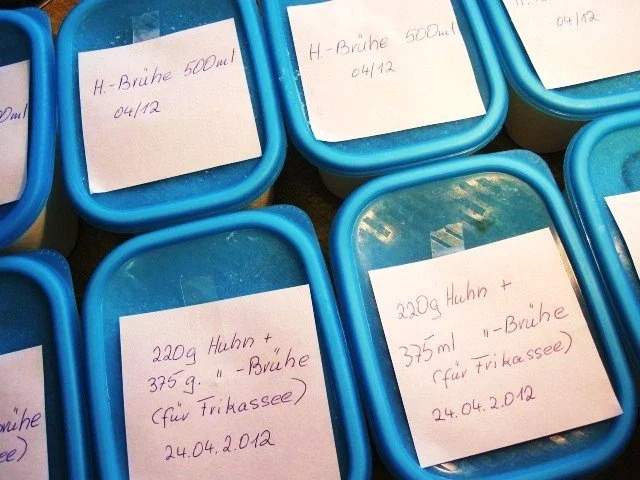 0ml
H.-Brühe 500ml
04/12
H.-Brühe 500ml
04/12
04/12
220g Huhn +
375g. " -Brühe
(für Frikassee)
24.04.2012
220g Huhn +
375ml " -Brühe
(für Frikassee)
24.04.2012
rühe
ee)